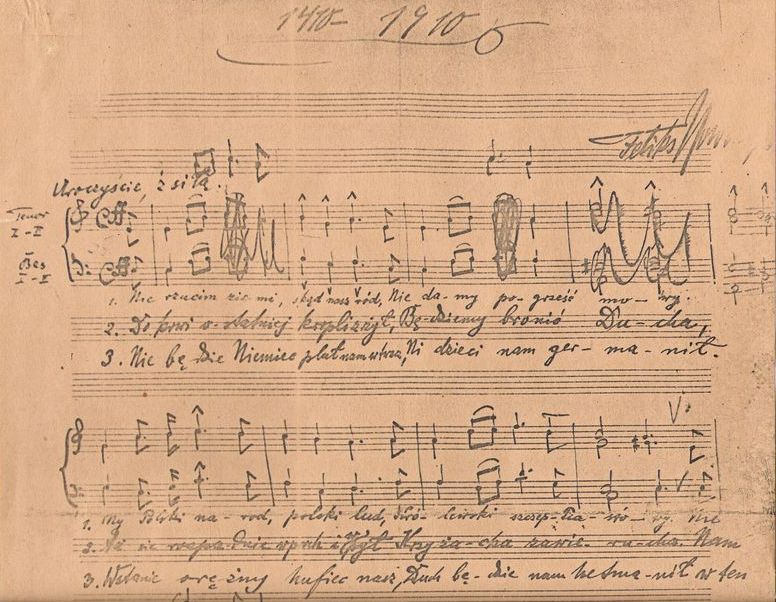 1410 - 1910
Feliks Now
Uroczyście, z siłą.
Tenor
I - II
Bas
I - II
1. Nie rzucim zie mi, skąd nasz ród, Nie da - my po - grześć mo - wy.
2. Do krwi o - statniej kropli z żył, Bę - dziemy bronić Du - cha,
3. Nie bę dzie Niemiec pluł nam w twarz, Ni dzieci nam ger - ma - nił.
1. My Polski na - ród, polski lud, Kró - lewski szczep Pia - sto - wy. Nie
2. Aż się rozpa - dnie w proch i pył Krzyża - cka zawie - ru - cha. Nam
3. Wstanie orężny hufiec nasz, Duch bę - dzie nam hetma - nił w ten